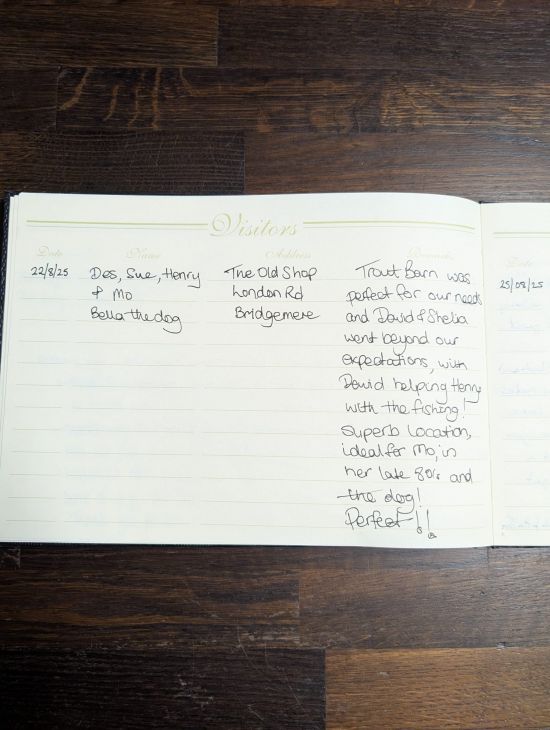 Visitors
Date Name Address Remarks
22/8/25 Des, Sue, Henry The Old Shop Trout Barn was
& Mo London Rd perfect for our needs
Bella the dog Bridgemere and David & Shelia
went beyond our
expectations, with
David helping Henry
with the fishing!
Superb location,
ideal for Mo, in
her late 80's and
the dog!
Perfect!!
Date
25/08/25